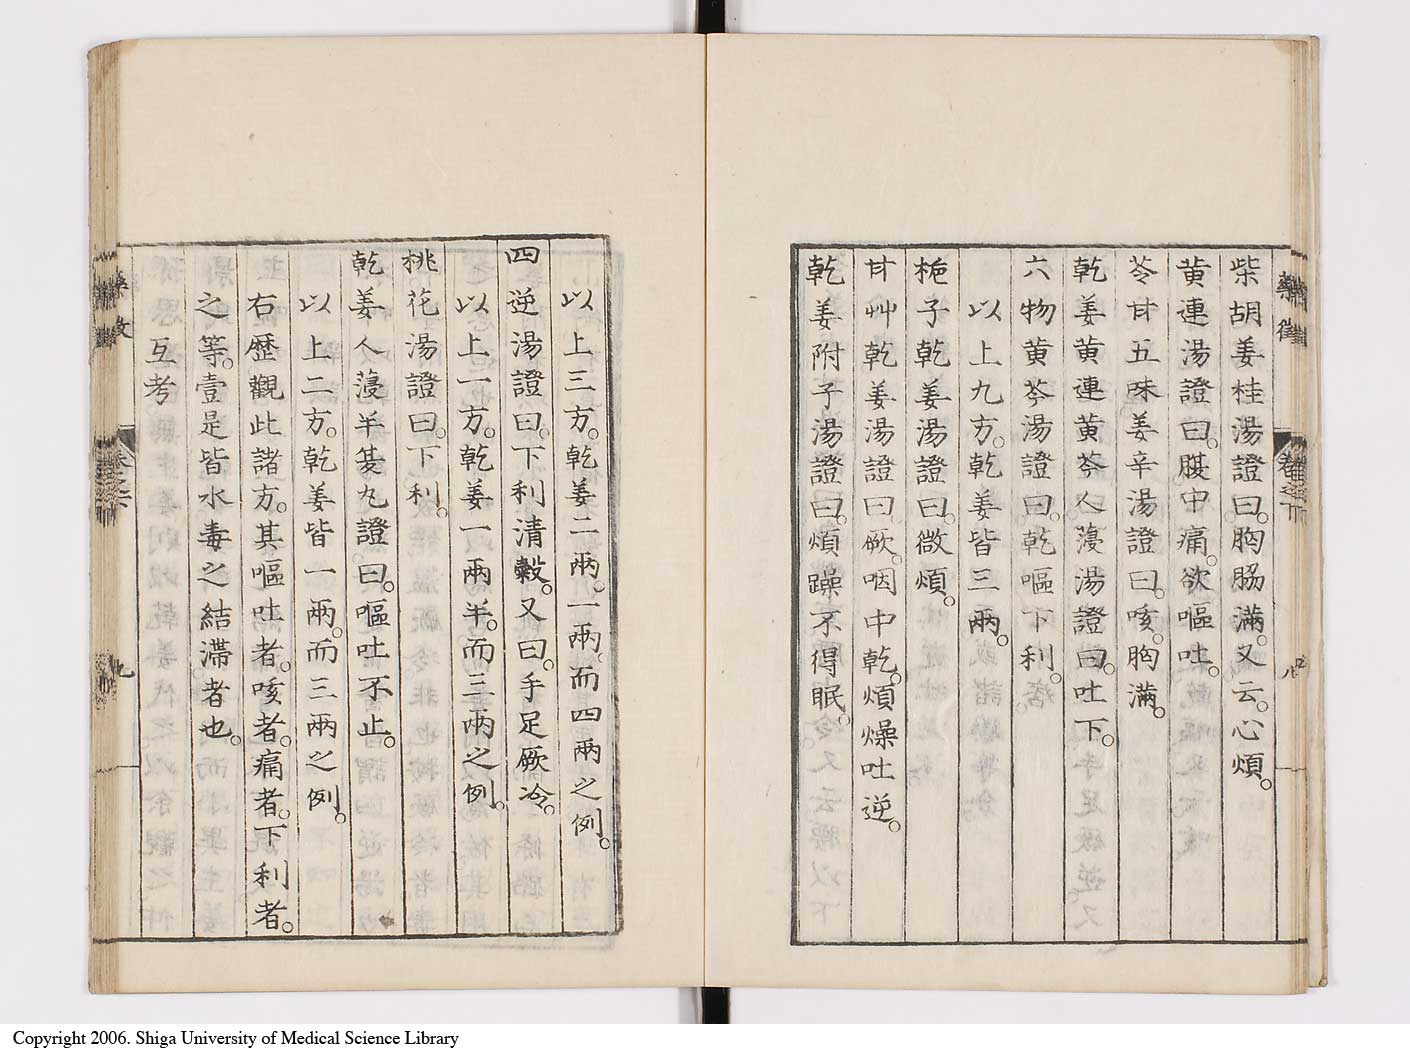 柴胡姜桂湯證曰。胸脇滿。又云。心煩。
黄連湯證曰。腹中痛。欲嘔吐。
苓甘五味姜辛湯證曰。咳。胸滿。
乾姜黄連黄芩人薓湯證曰。吐下。
六物黄芩湯證曰。乾嘔下利。
以上九方。乾姜皆三兩。
梔子乾姜湯證曰。微煩。
甘艸乾姜湯證曰。厥。咽中乾。煩燥吐逆。
乾姜附子湯證曰。煩躁不得眠。
藥徵
卷之下
八
以上三方。乾姜二兩。一兩。而四兩之例。
四逆湯證曰。下利清糓。又曰。手足厥冷。
以上一方。乾姜一兩半。而三兩之例。
桃花湯證曰。下利。
乾姜人薓半夏丸證曰。嘔吐不止。
以上二方。乾姜皆一兩。而三兩之例。
右歷觀此諸方。其嘔吐者。咳者。痛者。下利者。
之等。壹是皆水毒之結滯者也。
互考
九
Copyright 2006. Shiga University of Medical Science Library